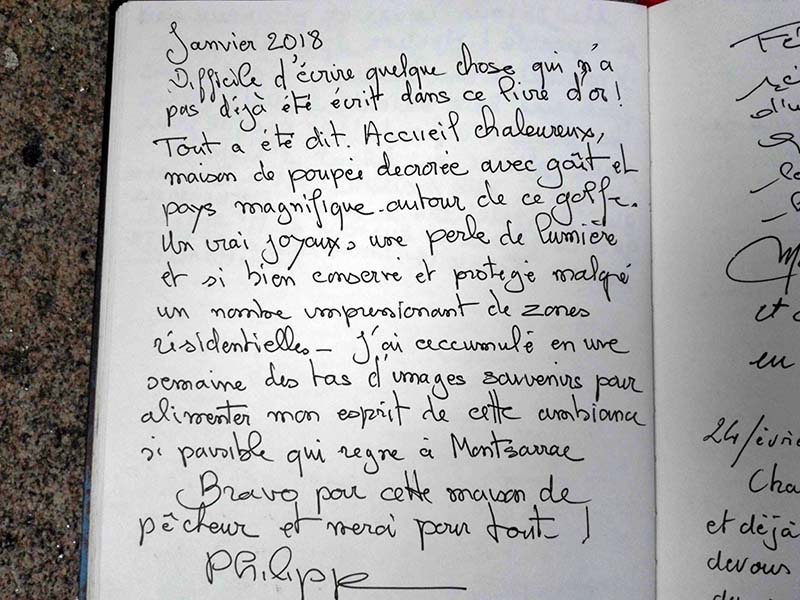 Janvier 2018
Difficile d'écrire quelque chose qui n'a
pas déjà été écrit dans ce livre d'or !
Tout a été dit. Accueil chaleureux,
maison de poupée decorée avec goût et
pays magnifique autour de ce golfe.
Un vrai joyaux, une perle de lumière
et si bien conservé et protégé malgré
un nombre impressionant de zones
résidentielles _ J'ai accumulé en une
semaine des tas d'images souvenirs pour
alimenter mon esprit de cette ambiance
si paisible qui regne à Montsarrac
Bravo pour cette maison de
pêcheur et merci pour tout !
Philippe
d'u
et
en
24/évrie
Cha
et déjà
devous